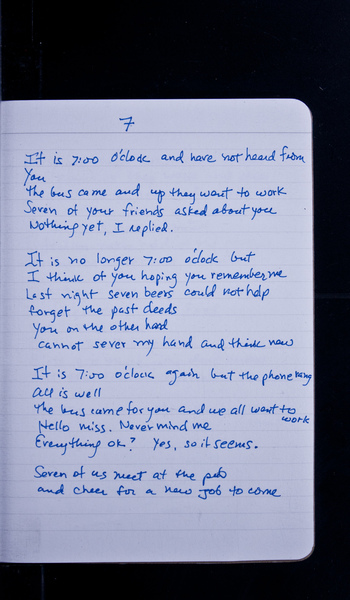 7
It is 7:00 o'clock and have not heard from
you
the bus came and up they went to work
Seven of your friends asked about you
Nothing yet, I replied.
It is no longer 7:00 o'clock but
I think of you hoping you remember me
Last night seven beers could not help
forget the past deeds
you on the other hand
cannot sever my hand and think new
It is 7:00 o'clock again but the phone rang
all is well
the bus came for you and we all went to
work
Hello miss. Never mind me
Everything ok? Yes, so it seems.
Seven of us meet at the pub
and cheer for a new job to come